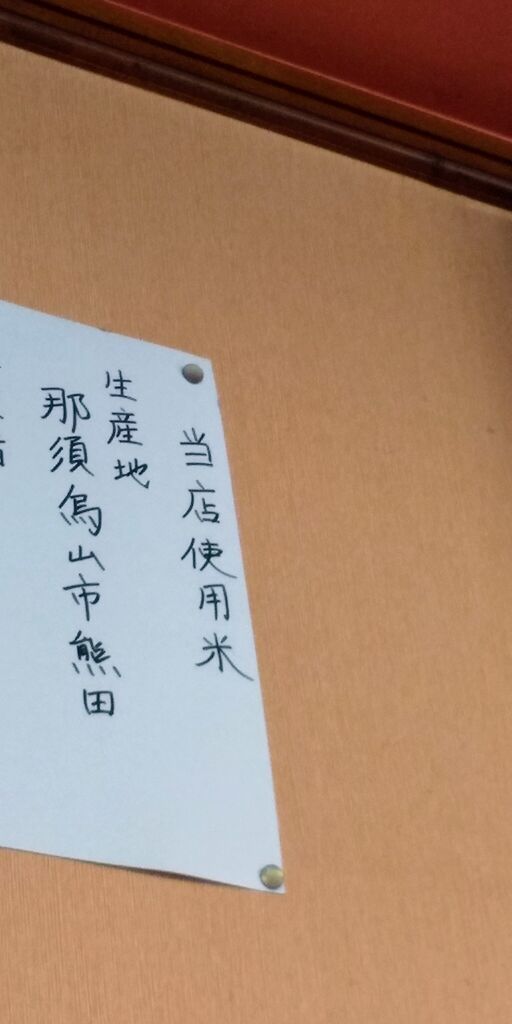 当店使用米
生産地
那須烏山市熊田